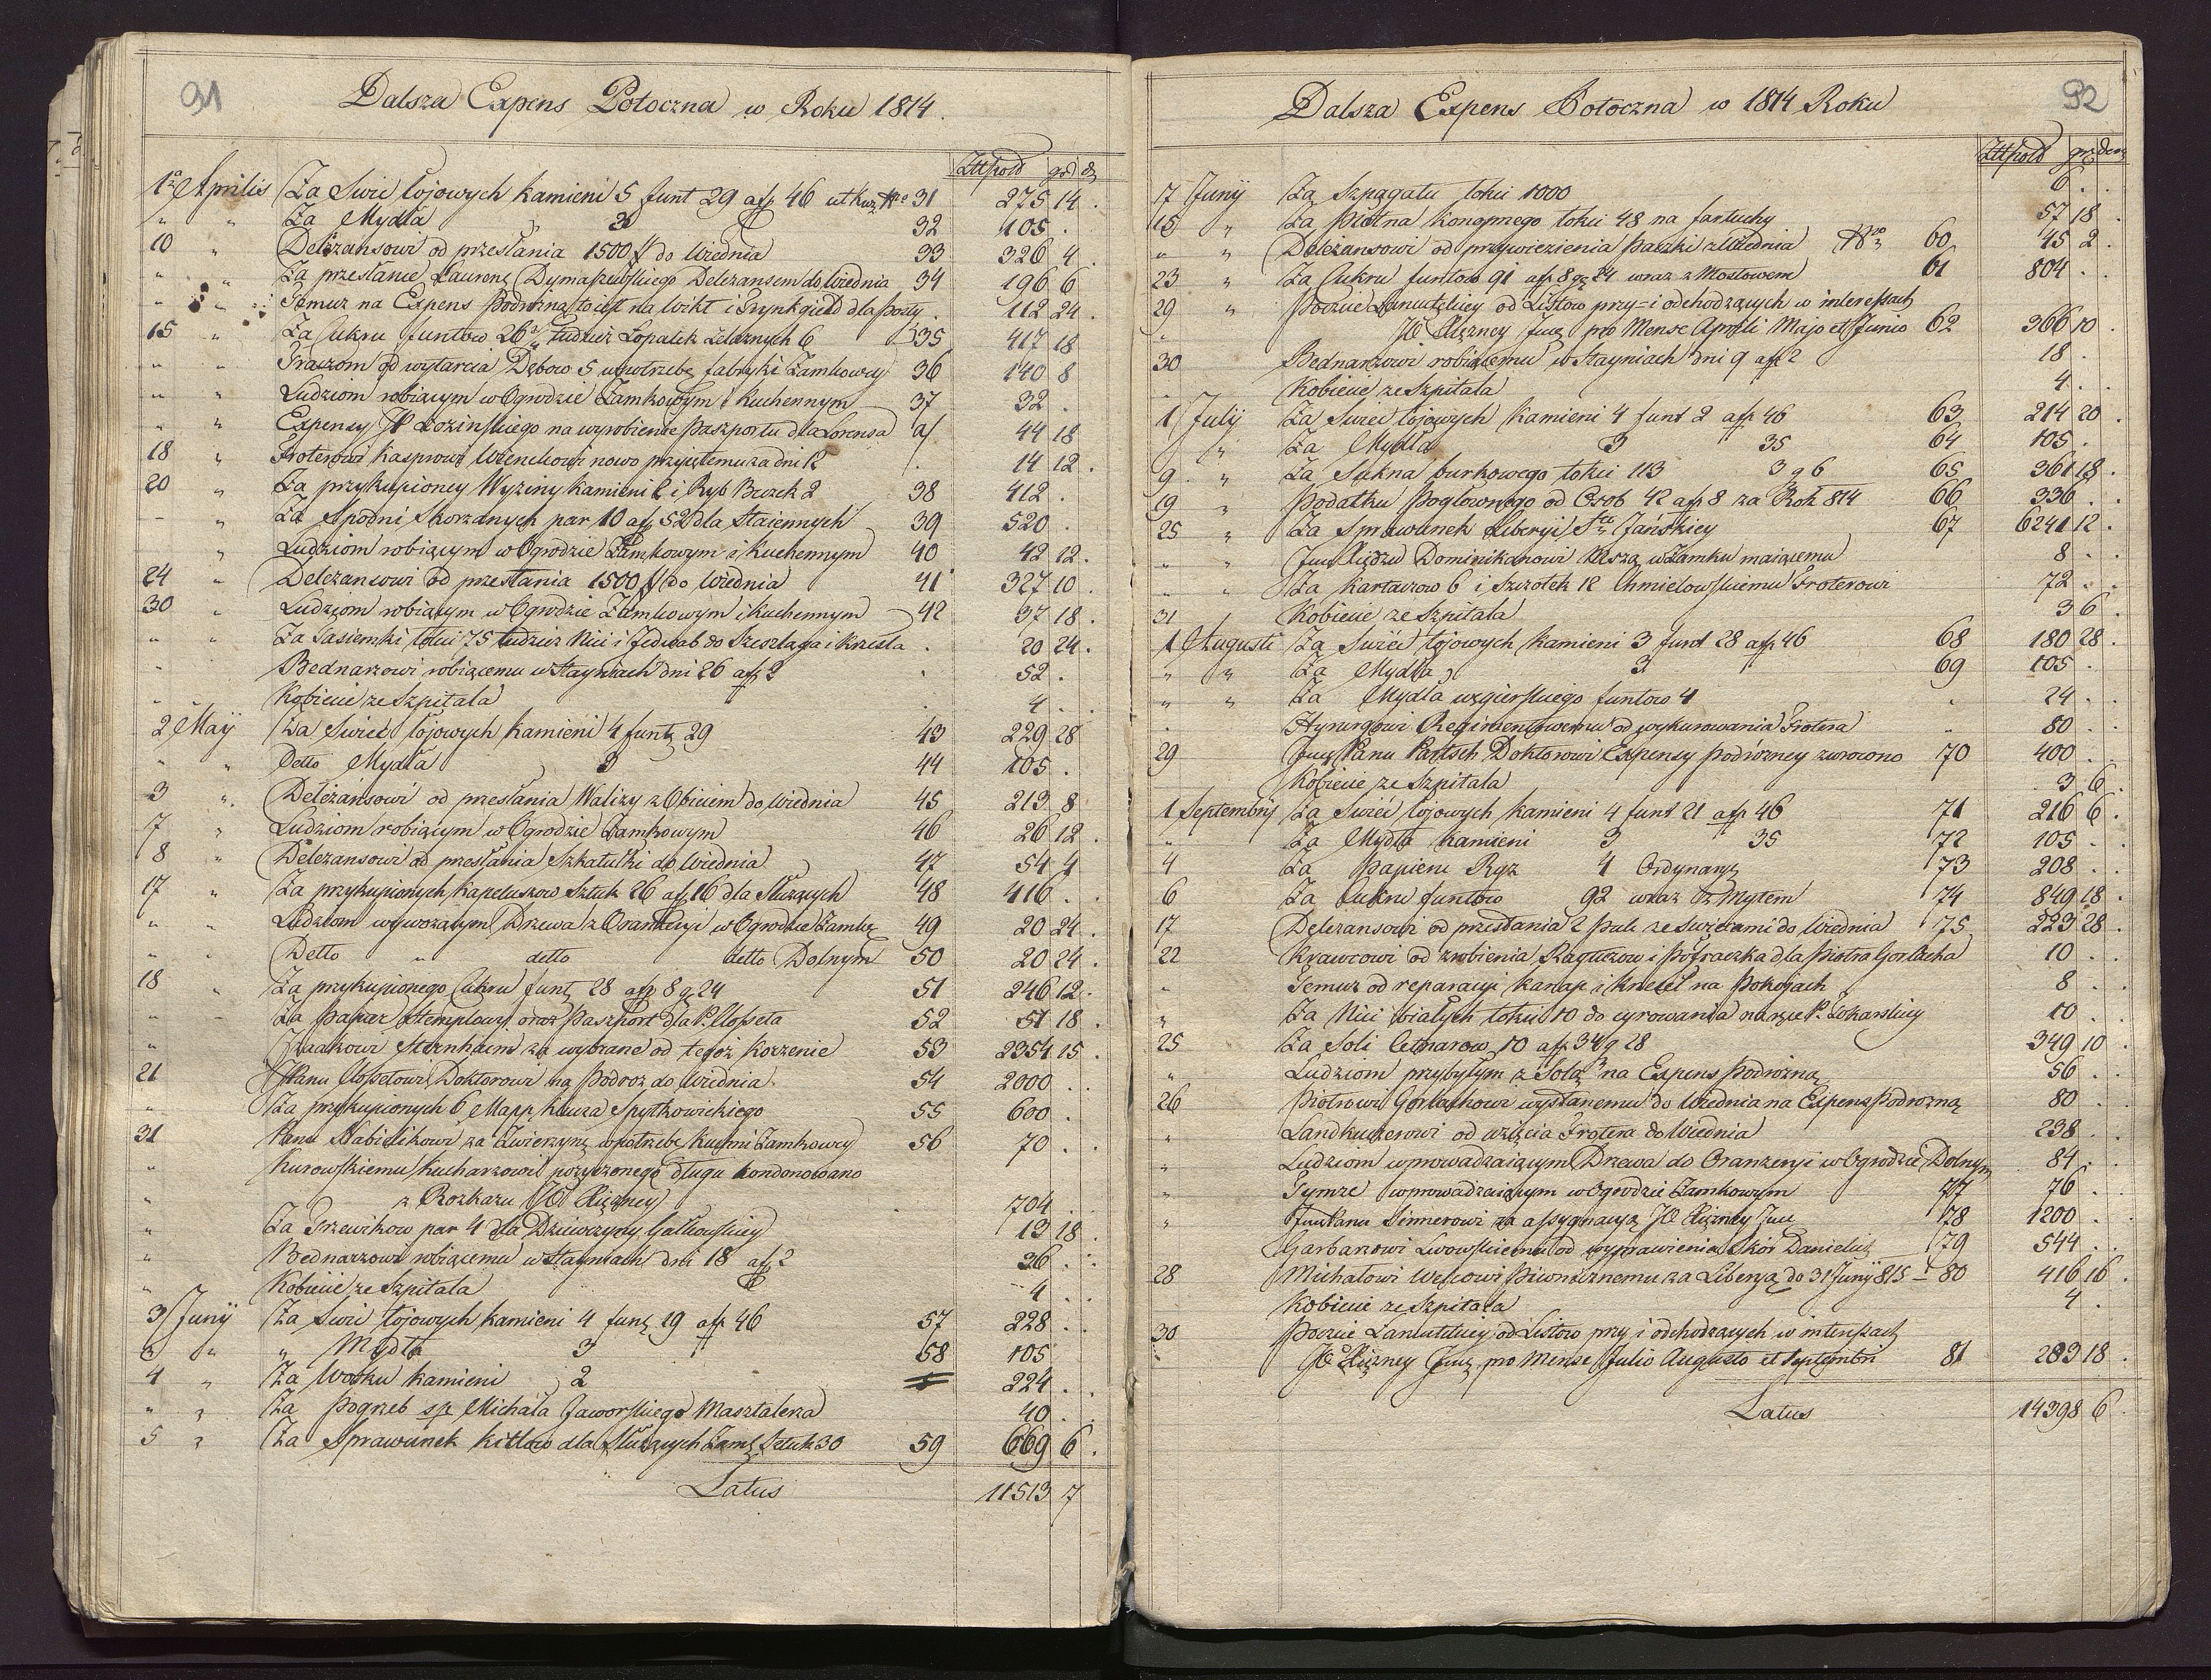 91
Dalsza Expens Potoczna w Roku 1814.
Złtpold gr d
1o Aprilis Za Swic łojowych kamieni 5 funt 29 asp 46 ut kwz Nro 31 275 14 .
" " Za Mydła 3 32 105 .
10 " Deleżansowi od przesłania 1500 f do Wiednia 33 326 4 .
" " Za przesłanie Laurenz Delezansem do Wiednia 34 196 6
" " Temuz na Expens Podrożną to iest na Wikt i dla Poczty . 112 24 .
15 " Za Cukru funtow 26 3/4 tudzież Łopatek żelaznych 6 35 417 18
" " Traczom od wytarcia Dębow 5 w potrzebę fabryki Zamkowey 36 140 8
" " Ludziom robiącym w Ogrodzie Zamkowym i Kuchennym 37 32 .
" " Expensy JP Łozinskiego na wyrobienie Paszportu dla Lorensa a/ 44 18
18 " Froterowi Kasprowi nowo przyiętemu za dni 12 . 14 12 .
20 " Za przykupioney Wyziny kamieni 2 i Ryb Beczek 2 38 412 .
- " Za Spodni Skorzanych par 10 asp 52 dla Staiennych 39 520 .
" Ludziom robiącym w Ogrodzie Zamkowym i Kuchennym 40 42 12 .
24 " Deleżansowi od przesłania 1500 f do Wiednia 41 327 10 .
30 " Ludziom robiącym w Ogrodzie Zamkowym i Kuchennym 42 37 18 .
" " Za Tasiemki łokci 75 tudzież Nici i Jedwab do Szeszlaga i krzesła . 20 24 .
" Bednarzowi robiącemu w Stayniach dni 26 asp 2 . 52 .
" Kobiecie ze Szpitala . 4 . .
2 Maÿ Za Swieć łojowych kamieni 4 funt 29 43 229 28
" " Detto Mydła 3 44 105 .
3 " Deleżansowi od przesłania Walizy z Obiciem do Wiednia 45 213 8
7 " Ludziom robiącym w Ogrodzie Zamkowym 46 26 12 .
8 " Deleżansowi od przesłania Szkatułki do Wiednia 47 54 4
17 " Za przykupionych Kapeluszow Sztuk 26 asp 16 dla Służących 48 416 . .
" " Ludziom wywożącym Drzewa z Oranżeryi w Ogrodzie Zamkz 49 20 24 .
" " Detto " detto detto Dolnym 50 20 24 .
18 " Za przykupionego Cukru funt 28 asp 8 g 24 51 246 12 .
" - Za Papier Stemplowy oraz Paszport dla P. Closseta 52 51 18 .
" Jzaakowi Sternheim za wybrane od tegoż korzenie 53 2354 15 .
21 JPanu Clossetowi Doktorowi na Podroz do Wiednia 54 2000 . .
" Za przykupionych 6 Mapp Klucza Spytkowickiego 55 600 .
31 Panu Habielikowi za Zwierzynę w potrzebę Kuchni Zamkowey 56 70 . .
" Kurowskiemu Kucharzowi pozyczonego długu kondonowano
" z Rozkazu JO Xiężney . 704 . .
" Za Trzewikow par 4 dla Dziewczyny Gałkowskiey 13 18 .
" Bednarzowi robiącemu w Stayniach dni 18 asp 2 36 . .
" Kobiecie ze Szpitala 4 . .
3 Junÿ Za Swic łojowych kamieni 4 funz 19 asp 46 57 228 . .
" " Mydła 3 58 105
4 " Za Wosku kamieni 2 224 . .
" " Za Pogrzeb sp Michała Jaworskiego Masztalerza 40 . .
5 " Za Sprawunek Kitlow dla Służących Zamz Sztuk 30 59 669 6 .
Latus 11513 7
92
Dalsza Expens Potoczna w 1814 Roku
Złtpold gr den
7 Junÿ Za Szpagatu łokci 1000 6 . .
15 " Za Płotna konopnego łokci 48 na fartuchy 57 18 .
" " Deleżansowi od przywiezienia Paczki z Wiednia Nro 60 45 2 .
23 " Za Cukru funtow 91 asp 8 gr 24 wraz z Mostowem 61 804 . .
29 " Poczcie Łancutskiey od Listow przy- i odchodzących w interessach
" JO Xiężney Jmcz pro Mense Aprili Majo et Junio 62 366 10 .
30 Bednarzowi robiącemu w Stayniach dni 9 asp 2 18 .
" Kobiecie ze Szpitala 4 . .
1 Julÿ Za Swiec łojowych kamieni 4 funt 2 asp 46 63 214 20 .
" Za Mydła 3 35 64 105 .
9 . " Za Sukna burkowego łokci 113 3 g 6 65 361 18 .
19 " Podatku Pogłownego od Osob 42 asp 8 za Rok 814 66 336 . .
25 " Za Sprawunek Liberyi Sto Jańskiey 67 6241 12 .
" " Jmci Xiędzu Dominikanowi Mszą w Zamku maiącemu 8 . .
" " Za Kartaczow 6 i Szczotek 12 Chmielowskiemu Froterowi 72 . .
31 Kobiecie ze Szpitala 3 6 .
1 Augusti Za Swiec łojowych kamieni 3 funt 28 asp 46 68 180 28 .
" " Za Mydła 3 69 105 .
" " Za Mydła węgierskiego funtow 4 . 24 . .
. Hyrurgowi Regimentowemu od wykurowania Frotera " 80 . .
29 Jmcz Panu Partsch Doktorowi Expensy podrożney zwrocono 70 400 .
Kobiecie ze Szpitala . 3 6 .
1 Septembrÿ Za Swieć łojowych kamieni 4 funt 21 asp 46 71 216 6 .
" Za Mydła kamieni 3 35 72 105 . .
4 Za Papieru Ryz 4 Ordynarz 73 208 . .
6 Za Cukru funtow 92 wraz z Mytem 74 849 18 .
17 Deleżansowi od przesłania 2 Pak ze Swiecami do Wiednia 75 223 28 .
22 Krawcowi od zrobienia i Pofraczka dla Piotra Gorlacha 10 . .
" Temuz od reparacyi kanap i krzeseł na Pokojach 8 . .
" Za Nici białych łokci 10 do cyrowania na ręce P. 10 . .
25 Za Soli Cetnarow 10 asp 34 g 28 349 10 .
" Ludziom przybyłym z Solą na Expens Podrożną 56 . .
26 Piotrowi Gorlachowi wysłanemu do Wiednia na Expens Podrożną 80 . .
" Landkuczerowi od wzięcia Frotera do Wiednia 238 . .
" Ludziom wprowadzaiącym Drzewa do Oranżeryi w Ogrodzie Dolnym 84 . .
" Tymze wprowadzaiącym w Ogrodzie Zamkowym 77 76 . .
" Jmcz Panu Sinnerowi za assygnacyą JO Xiężney Jmci 78 1200 . .
Garbarowi Lwowskiemu od wyprawienia Skor Danielich 79 544 . .
28 Michałowi Piwnicznemu za Liberyą do 31 Junÿ 815 80 416 16 .
Kobiecie ze Szpitala 4 .
30 Poczcie Łancutskiey od Listow przy i odchodzących w interssach
" JO Xiężney Jmcz pro Mense Julio Augusto et Septembri 81 283 18 .
Latus 14398 6